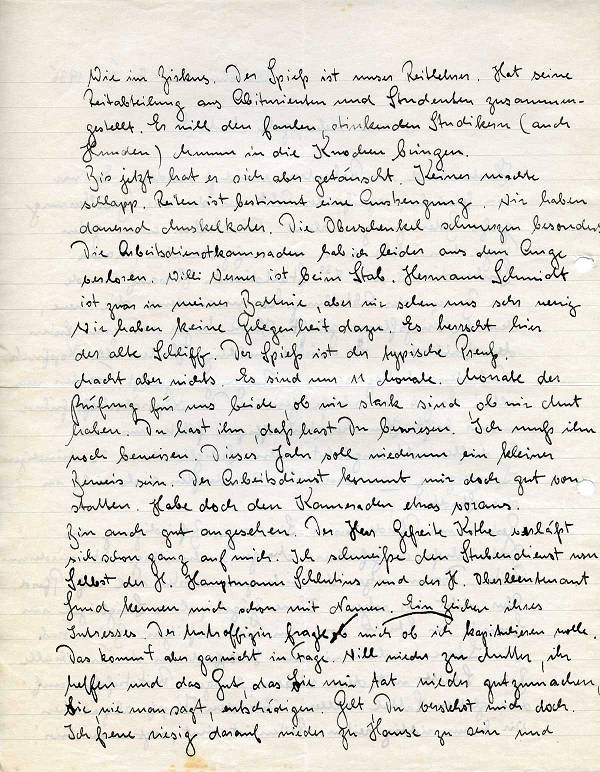 Wie im Zirkus. Der Spieß ist unser Reitlehrer. Hat seine
Reitabteilung aus Abiturienten und Studenten zusammen-
gestellt. Er will den faulen, stinkenden Studikern (auch
Hunden) Mumm in die Knochen bringen.
Bis jetzt hat er sich aber getäuscht. Keiner machte
schlapp. Reiten ist bestimmt eine Anstrengung. Wir haben
dauernd Muskelkater. Die Oberschenkel schmerzen besonders
Die Arbeitsdienstkameraden hab ich leider aus dem Auge
verloren. Willi Werner ist beim Stab. Hermann Schmidt
ist zwar in meiner Batterie, aber wir sehen uns sehr wenig
Wir haben keine Gelegenheit dazu. Es herrscht hier
der alte Schliff. Der Spieß ist der typische Preuß.
Macht aber nichts. Es sind nur 11 Monate. Monate der
Prüfung für uns beide, ob wir stark sind, ob wir Mut
haben. Du hast ihn, daß hast Du bewiesen. Ich muß ihn
noch beweisen. Dieses Jahr soll wiederum ein kleiner
Beweis sein. Der Arbeitsdienst kommt mir doch gut von
statten. Habe doch den Kameraden etwas voraus.
Bin auch gut angesehen. Der Herr Gefreite Kothe verläßt
sich schon ganz auf mich. Ich schmeiße den Stubendienst nun
Selbst der H. Hauptmann und der H. Oberleutenant
kennen mich schon mit Namen. Ein Zeichen ihres
Interesses. Der Unteroffizier fragte mich ob ich kapitulieren wolle.
Das kommt aber garnicht in Frage. Will wieder zu Mutter, ihr
helfen und das Gut, das Sie mir tat wieder gutzumachen,
Sie, wie man sagt, entschädigen. Gelt Du verstehst mich doch.
Ich freue riesig darauf wieder zu Hause zu sein und